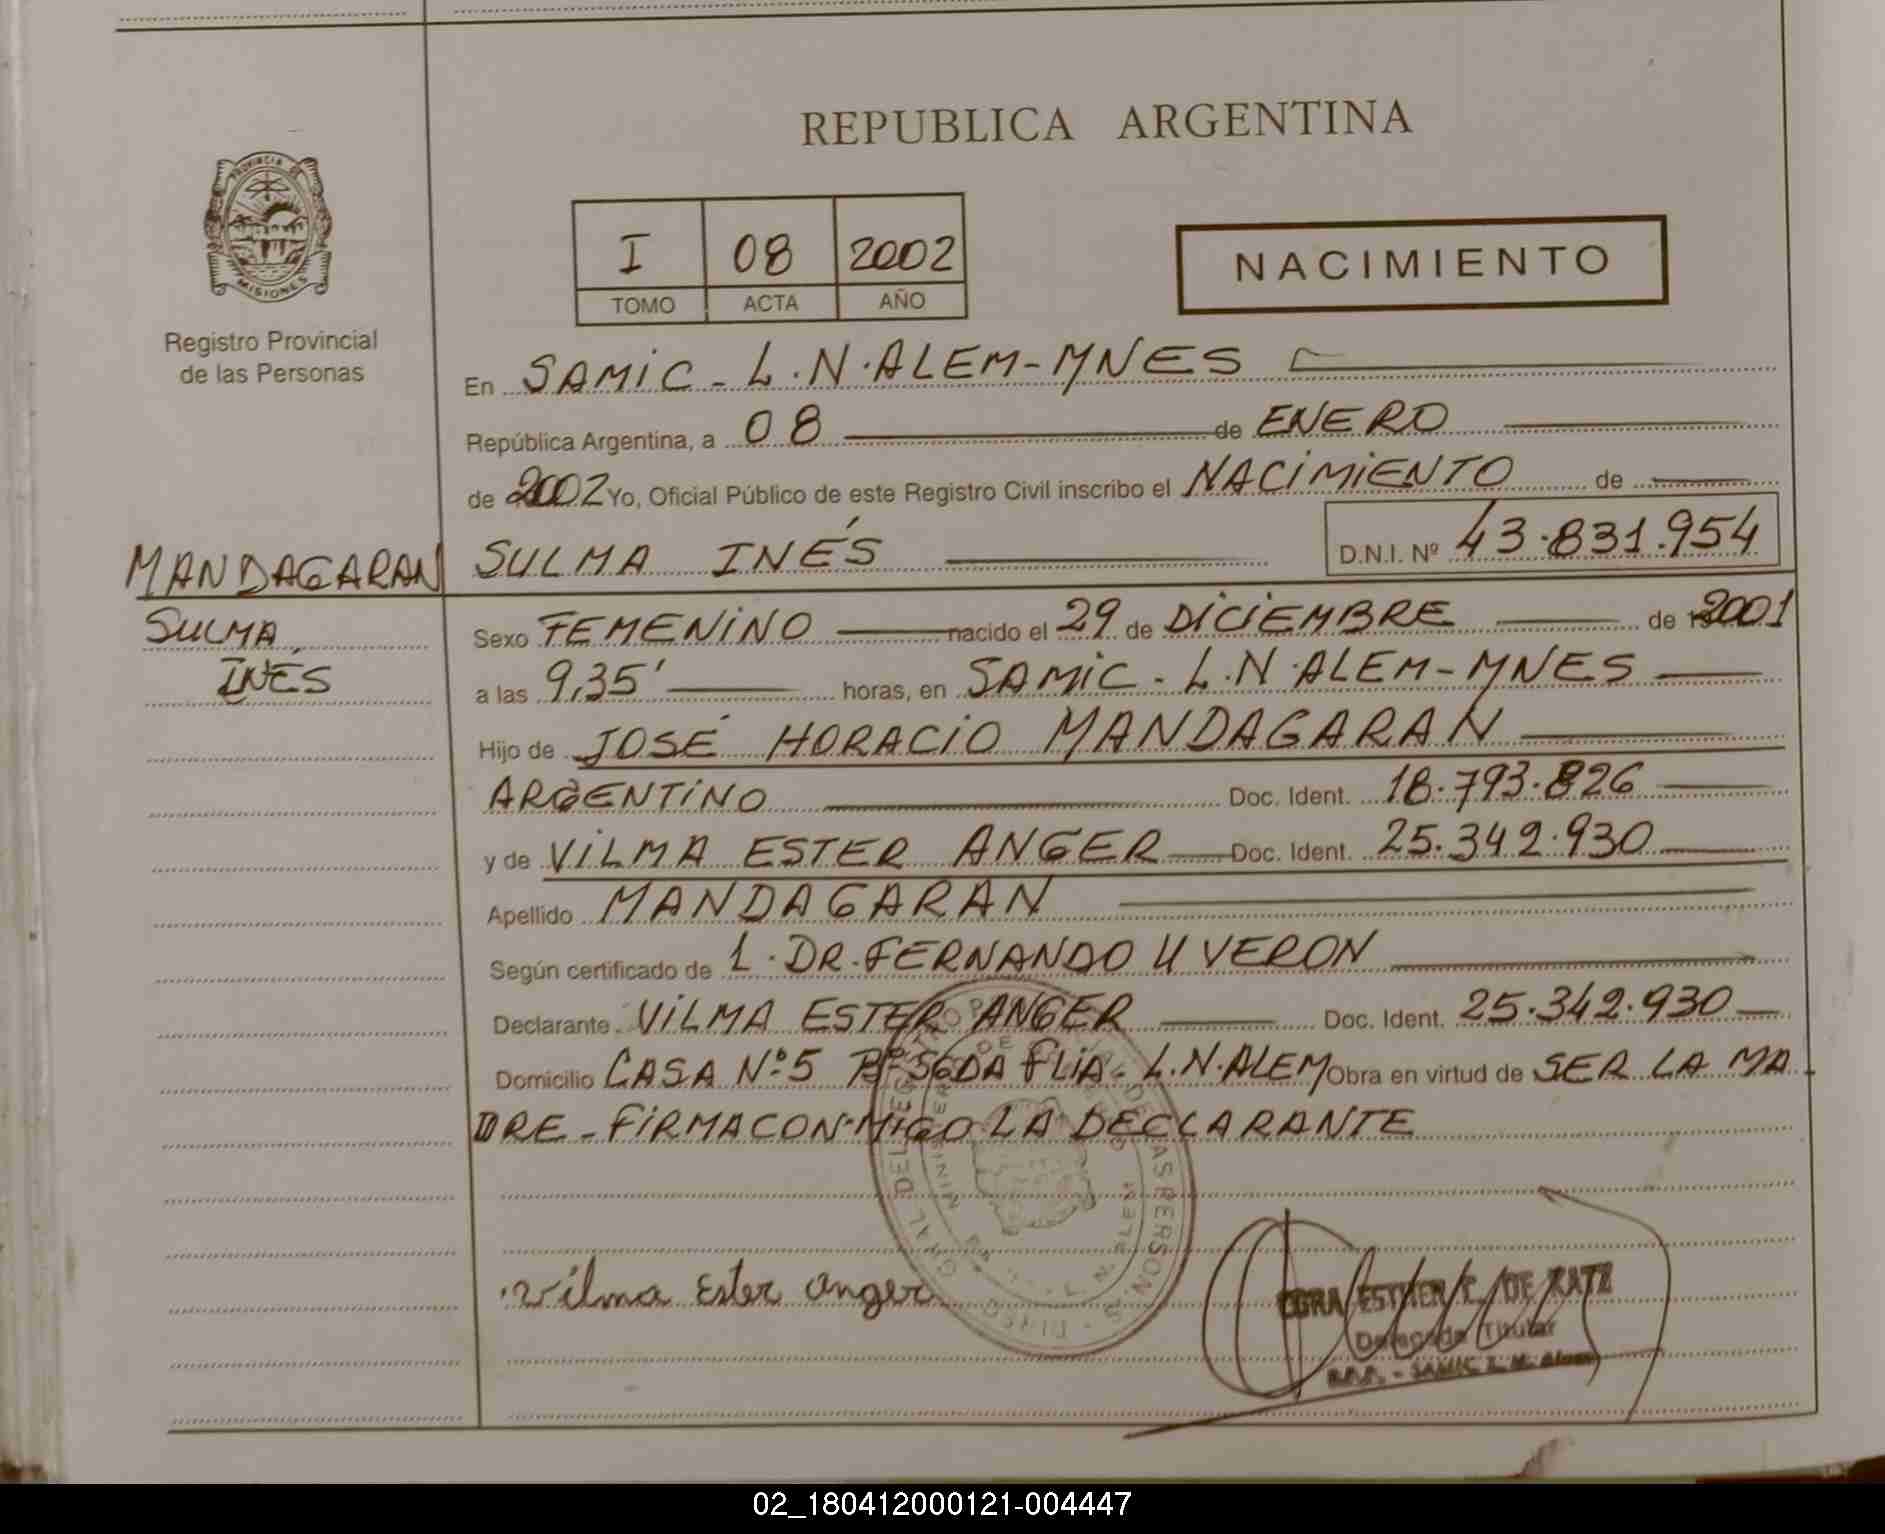 REPUBLICA ARGENTINA
PROVINCIA DE MISIONES
Registro Provincial
de las Personas
I 08 2002
TOMO ACTA AÑO
NACIMIENTO
En SAMIC - L.N. ALEM - MNES
República Argentina, a 08 de ENERO
de 2002 Yo, Oficial Público de este Registro Civil inscribo el NACIMIENTO de
MANDAGARAN SULMA INÉS D.N.I. Nº 43.831.954
SULMA
INÉS
Sexo FEMENINO nacido el 29 de DICIEMBRE de 2001
a las 9,35' horas, en SAMIC - L.N. ALEM - MNES
Hijo de JOSÉ HORACIO MANDAGARAN
ARGENTINO Doc. Ident. 18.793.826
y de VILMA ESTER ANGER Doc. Ident. 25.342.930
Apellido MANDAGARAN
Según certificado de 1. DR. FERNANDO U VERON
Declarante VILMA ESTER ANGER Doc. Ident. 25.342.930
Domicilio CASA Nº 5 Bº FLIA. L.N. ALEM Obra en virtud de SER LA MA
DRE - FIRMA CON MIGO LA DECLARANTE
Vilma Ester Anger
ESTHER DE KATZ
Delegada Titular
R.P.P. - SAMIC L. N. Alem
02_180412000121-004447